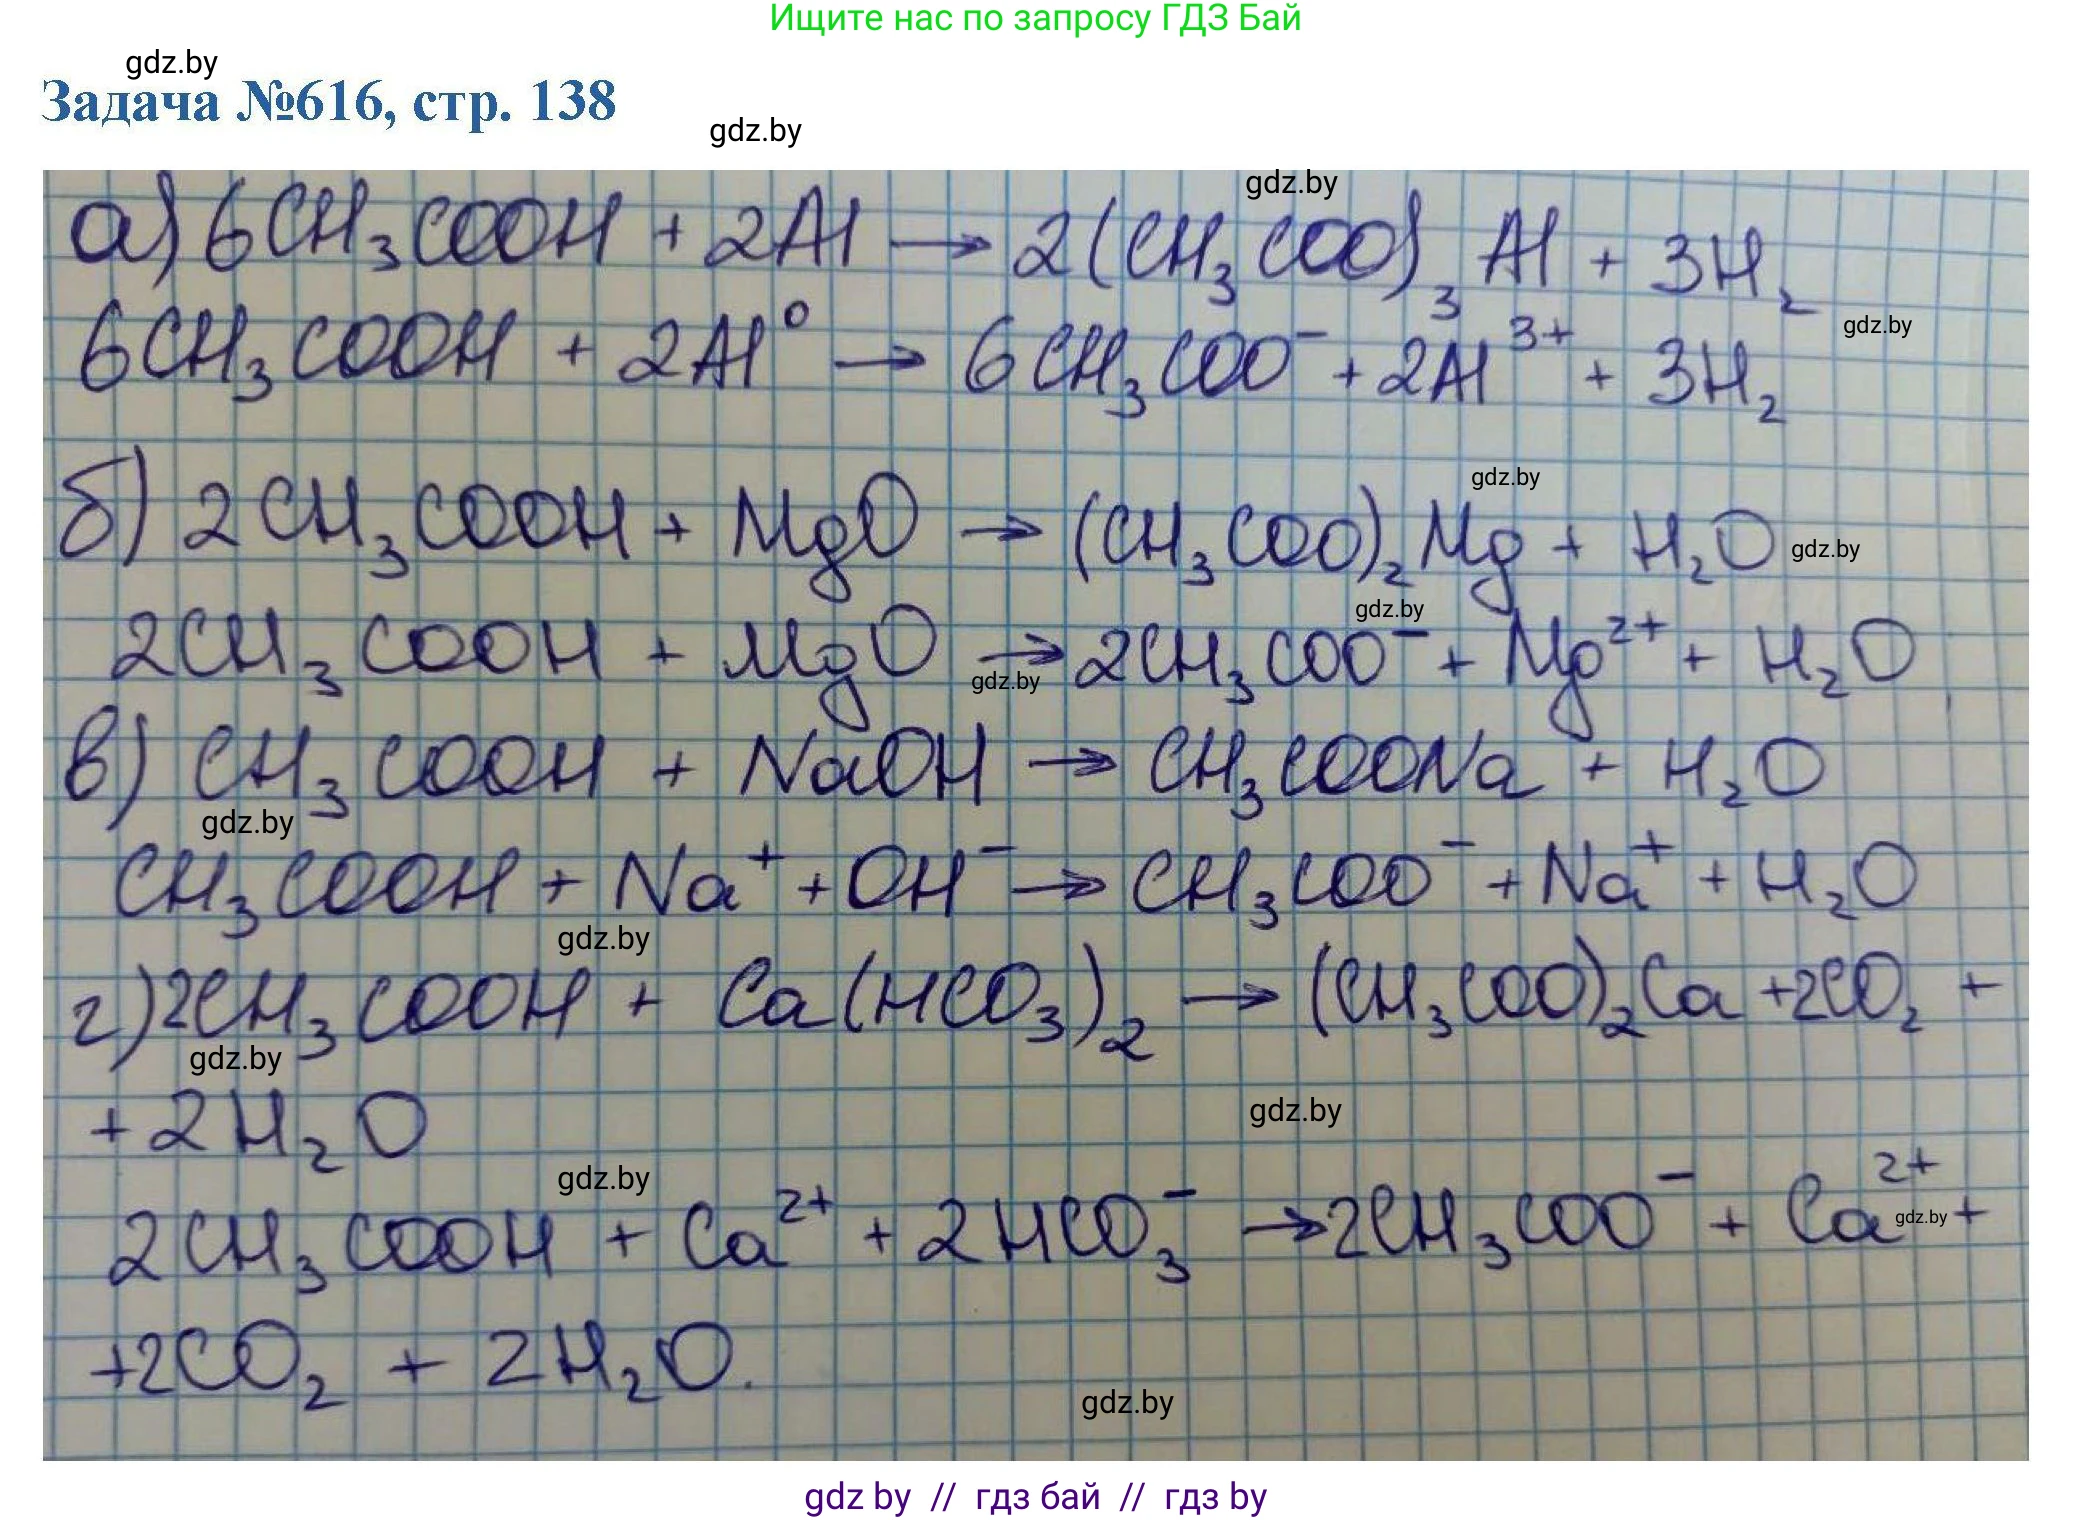 Ищите нас по запросу ГДЗ Бай
gdz.by
Задача №616, стр. 138
gdz.by
gdz.by
а) 6CH₃COOH + 2Al → 2(CH₃COO)₃Al + 3H₂
gdz.by
6CH₃COOH + 2Al⁰ → 6CH₃COO⁻ + 2Al³⁺ + 3H₂
gdz.by
б) 2CH₃COOH + MgO → (CH₃COO)₂Mg + H₂O
gdz.by
gdz.by
2CH₃COOH + MgO → 2CH₃COO⁻ + Mg²⁺ + H₂O
gdz.by
в) CH₃COOH + NaOH → CH₃COONa + H₂O
gdz.by
CH₃COOH + Na⁺ + OH⁻ → CH₃COO⁻ + Na⁺ + H₂O
gdz.by
г) 2CH₃COOH + Ca(HCO₃)₂ → (CH₃COO)₂Ca + 2CO₂ +
gdz.by
+ 2H₂O
gdz.by
gdz.by
2CH₃COOH + Ca²⁺ + 2HCO₃⁻ → 2CH₃COO⁻ + Ca²⁺ +
gdz.by
+ 2CO₂ + 2H₂O.
gdz.by
gdz by // гдз бай // гдз by